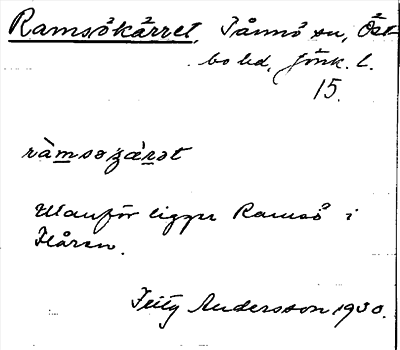 Ramsökärret, Tånnö sn, Öst-
bo hd, Jönk. l.
15.
ràmsəʒæ̀rət
Utanför ligger Ramsö i
Flåren.
Fritz Andersson 1930.